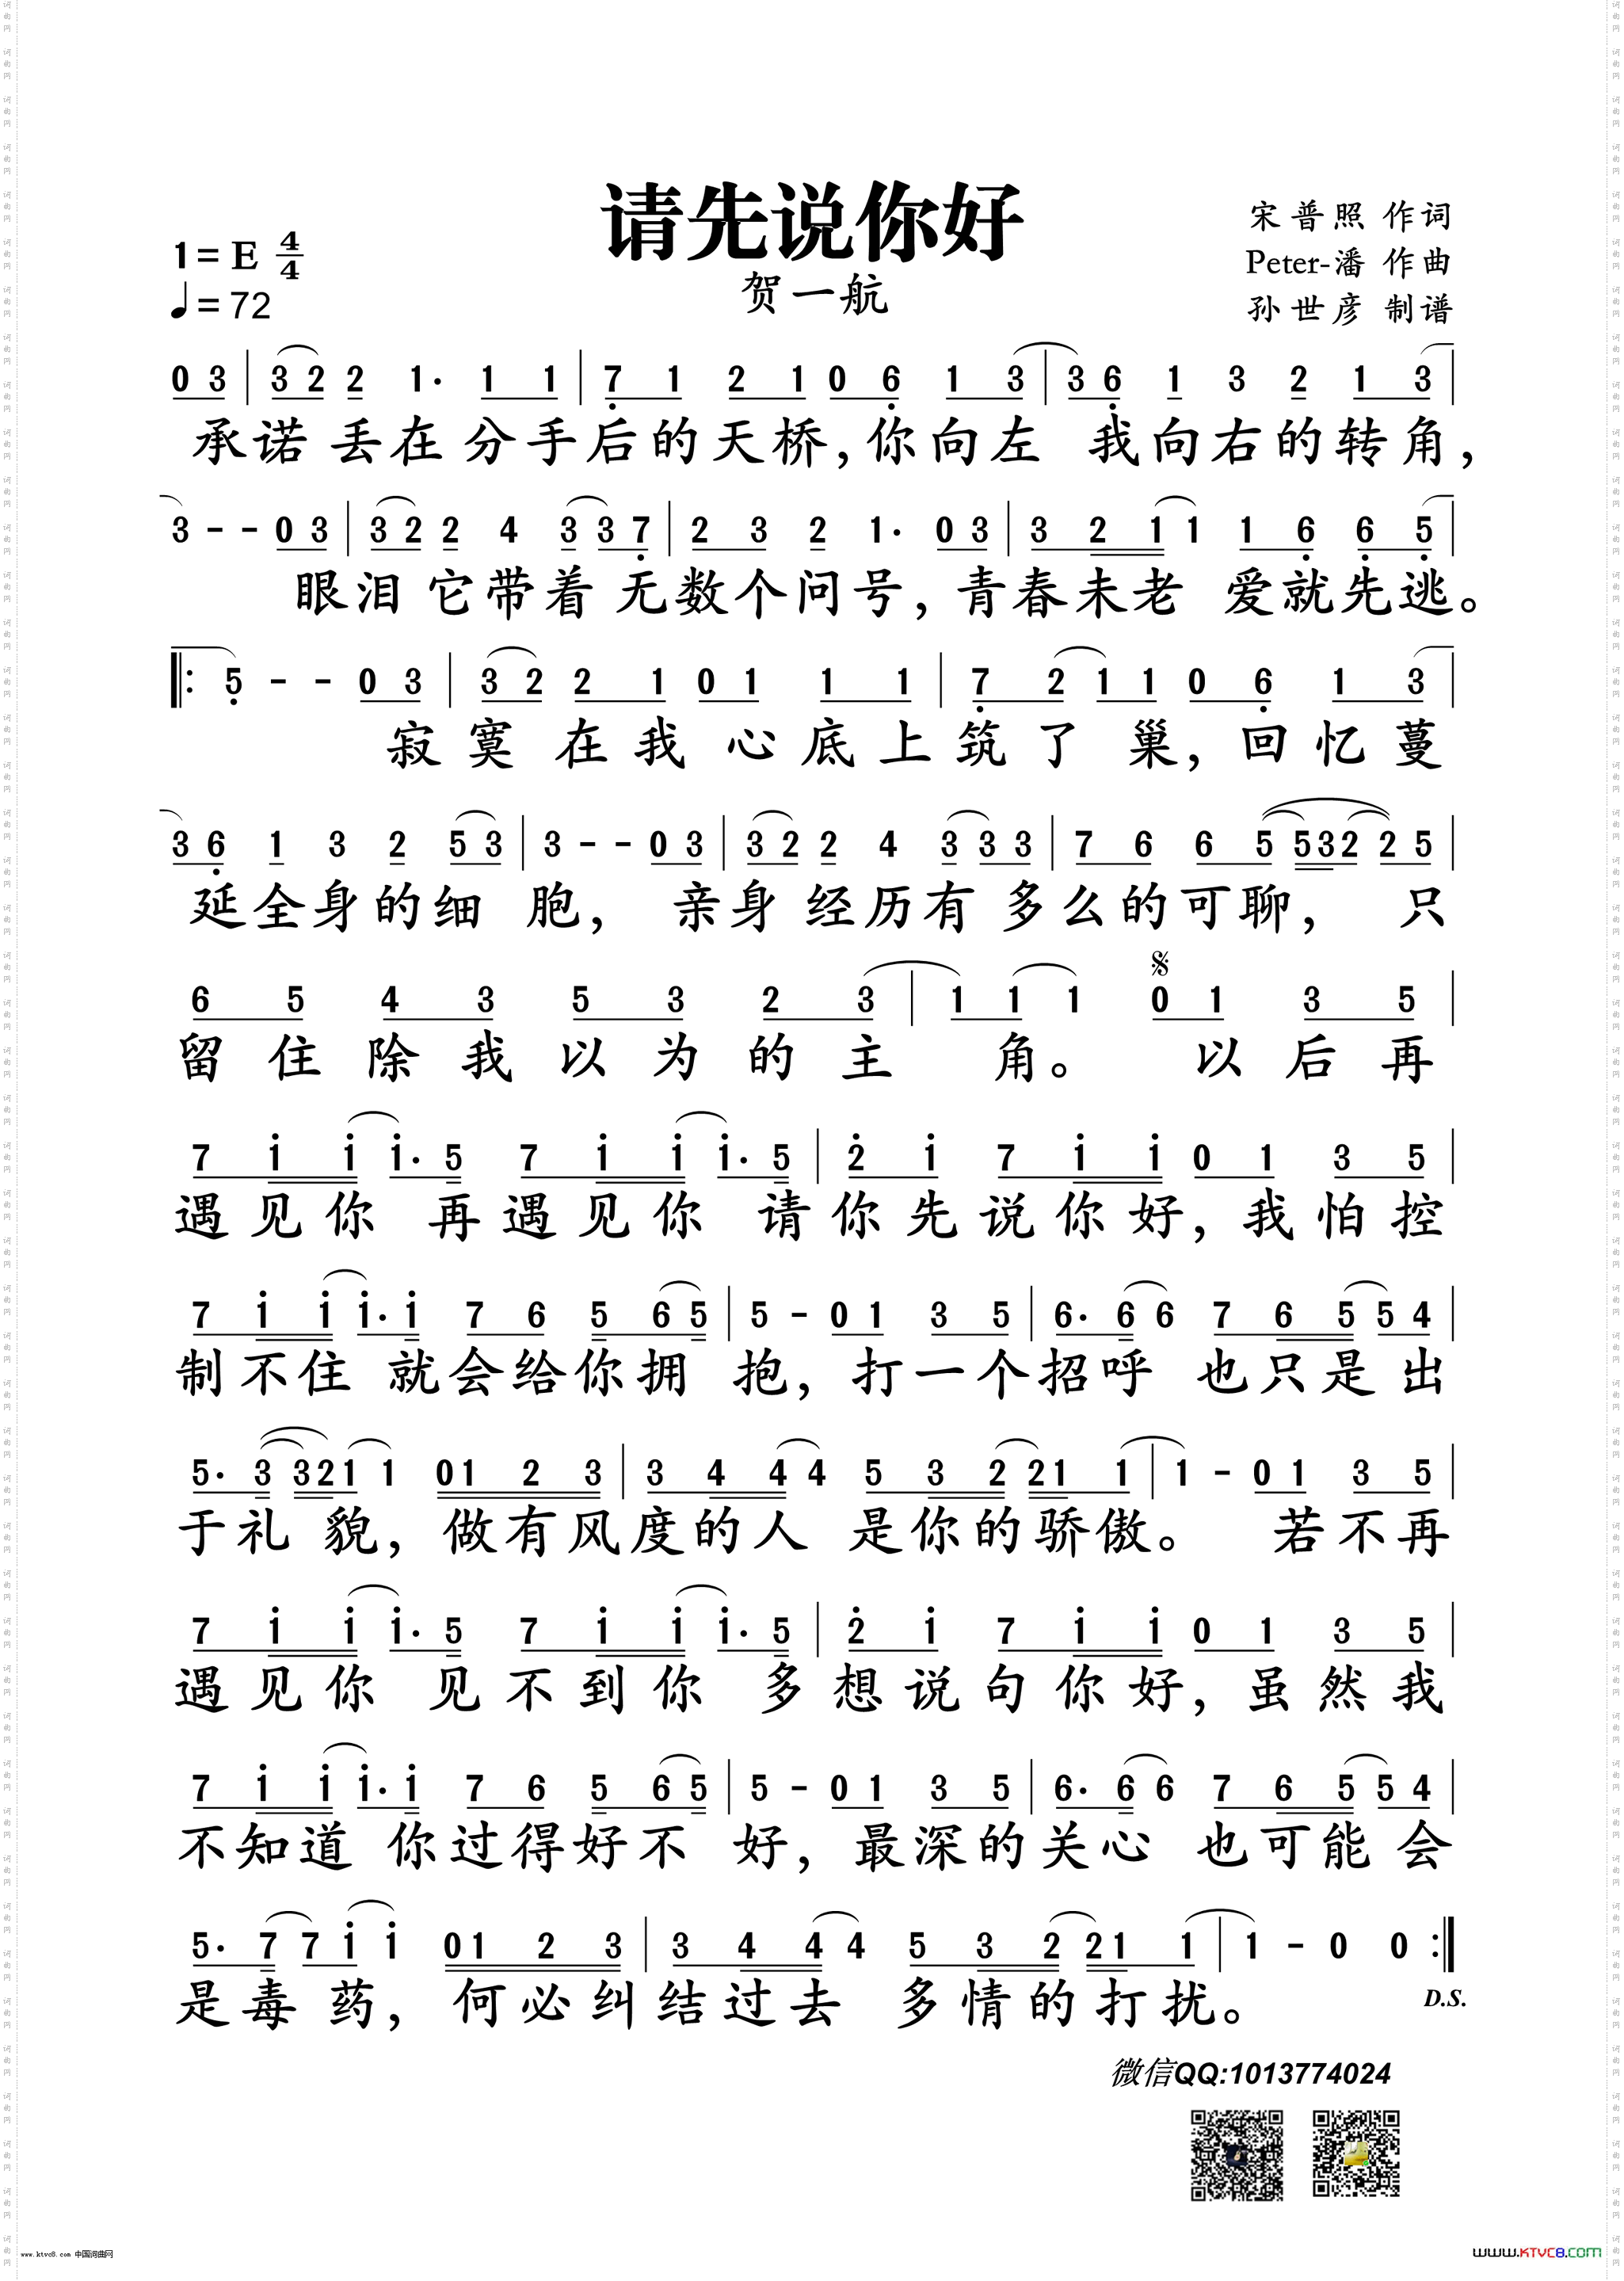 请先说你好
贺一航
1= E 4/4
♩= 72
宋普照 作词
Peter-潘 作曲
孙世彦 制谱
0 3 | 3 2 2 1· 1 1 | 7̣ 1 2 1 0 6̣ 1 3 | 3 6̣ 1 3 2 1 3 |
承诺丢在分手后的天桥,你向左 我向右的转角,
3 - - 0 3 | 3 2 2 4 3 3 7̣ | 2 3 2 1· 0 3 | 3 2 1 1 1 6̣ 6̣ 5̣ |
眼泪它带着无数个问号,青春未老 爱就先逃。
‖: 5̣ - - 0 3 | 3 2 2 1 0 1 1 1 | 7̣ 2 1 1 0 6̣ 1 3 |
寂寞在我心底上筑了巢,回忆蔓
3 6̣ 1 3 2 5 3 | 3 - - 0 3 | 3 2 2 4 3 3 3 | 7 6 6 5 5 3 2 2 5 |
延全身的细胞, 亲身经历有多么的可聊, 只
𝄋
6 5 4 3 5 3 2 3 | 1 1 1 0 1 3 5 |
留住除我以为的主 角。 以后再
7 1̇ 1̇ 1̇· 5 7 1̇ 1̇ 1̇· 5 | 2̇ 1̇ 7 1̇ 1̇ 0 1 3 5 |
遇见你 再遇见你 请你先说你好,我怕控
7 1̇ 1̇ 1̇· 1̇ 7 6 5 6 5 | 5 - 0 1 3 5 | 6· 6 6 7 6 5 5 4 |
制不住 就会给你拥 抱,打一个招呼 也只是出
5· 3 3 2 1 1 0 1 2 3 | 3 4 4 4 5 3 2 2 1 1 | 1 - 0 1 3 5 |
于礼 貌,做有风度的人 是你的骄傲。 若不再
7 1̇ 1̇ 1̇· 5 7 1̇ 1̇ 1̇· 5 | 2̇ 1̇ 7 1̇ 1̇ 0 1 3 5 |
遇见你 见不到你 多想说句你好,虽然我
7 1̇ 1̇ 1̇· 1̇ 7 6 5 6 5 | 5 - 0 1 3 5 | 6· 6 6 7 6 5 5 4 |
不知道 你过得好不 好,最深的关心 也可能会
5· 7 7 1̇ 1̇ 0 1 2 3 | 3 4 4 4 5 3 2 2 1 1 | 1 - 0 0 :‖
是毒 药, 何必纠结过去 多情的打扰。
D.S.
微信QQ:1013774024
www.ktvc8.com 中国词曲网
www.KTVC8.com